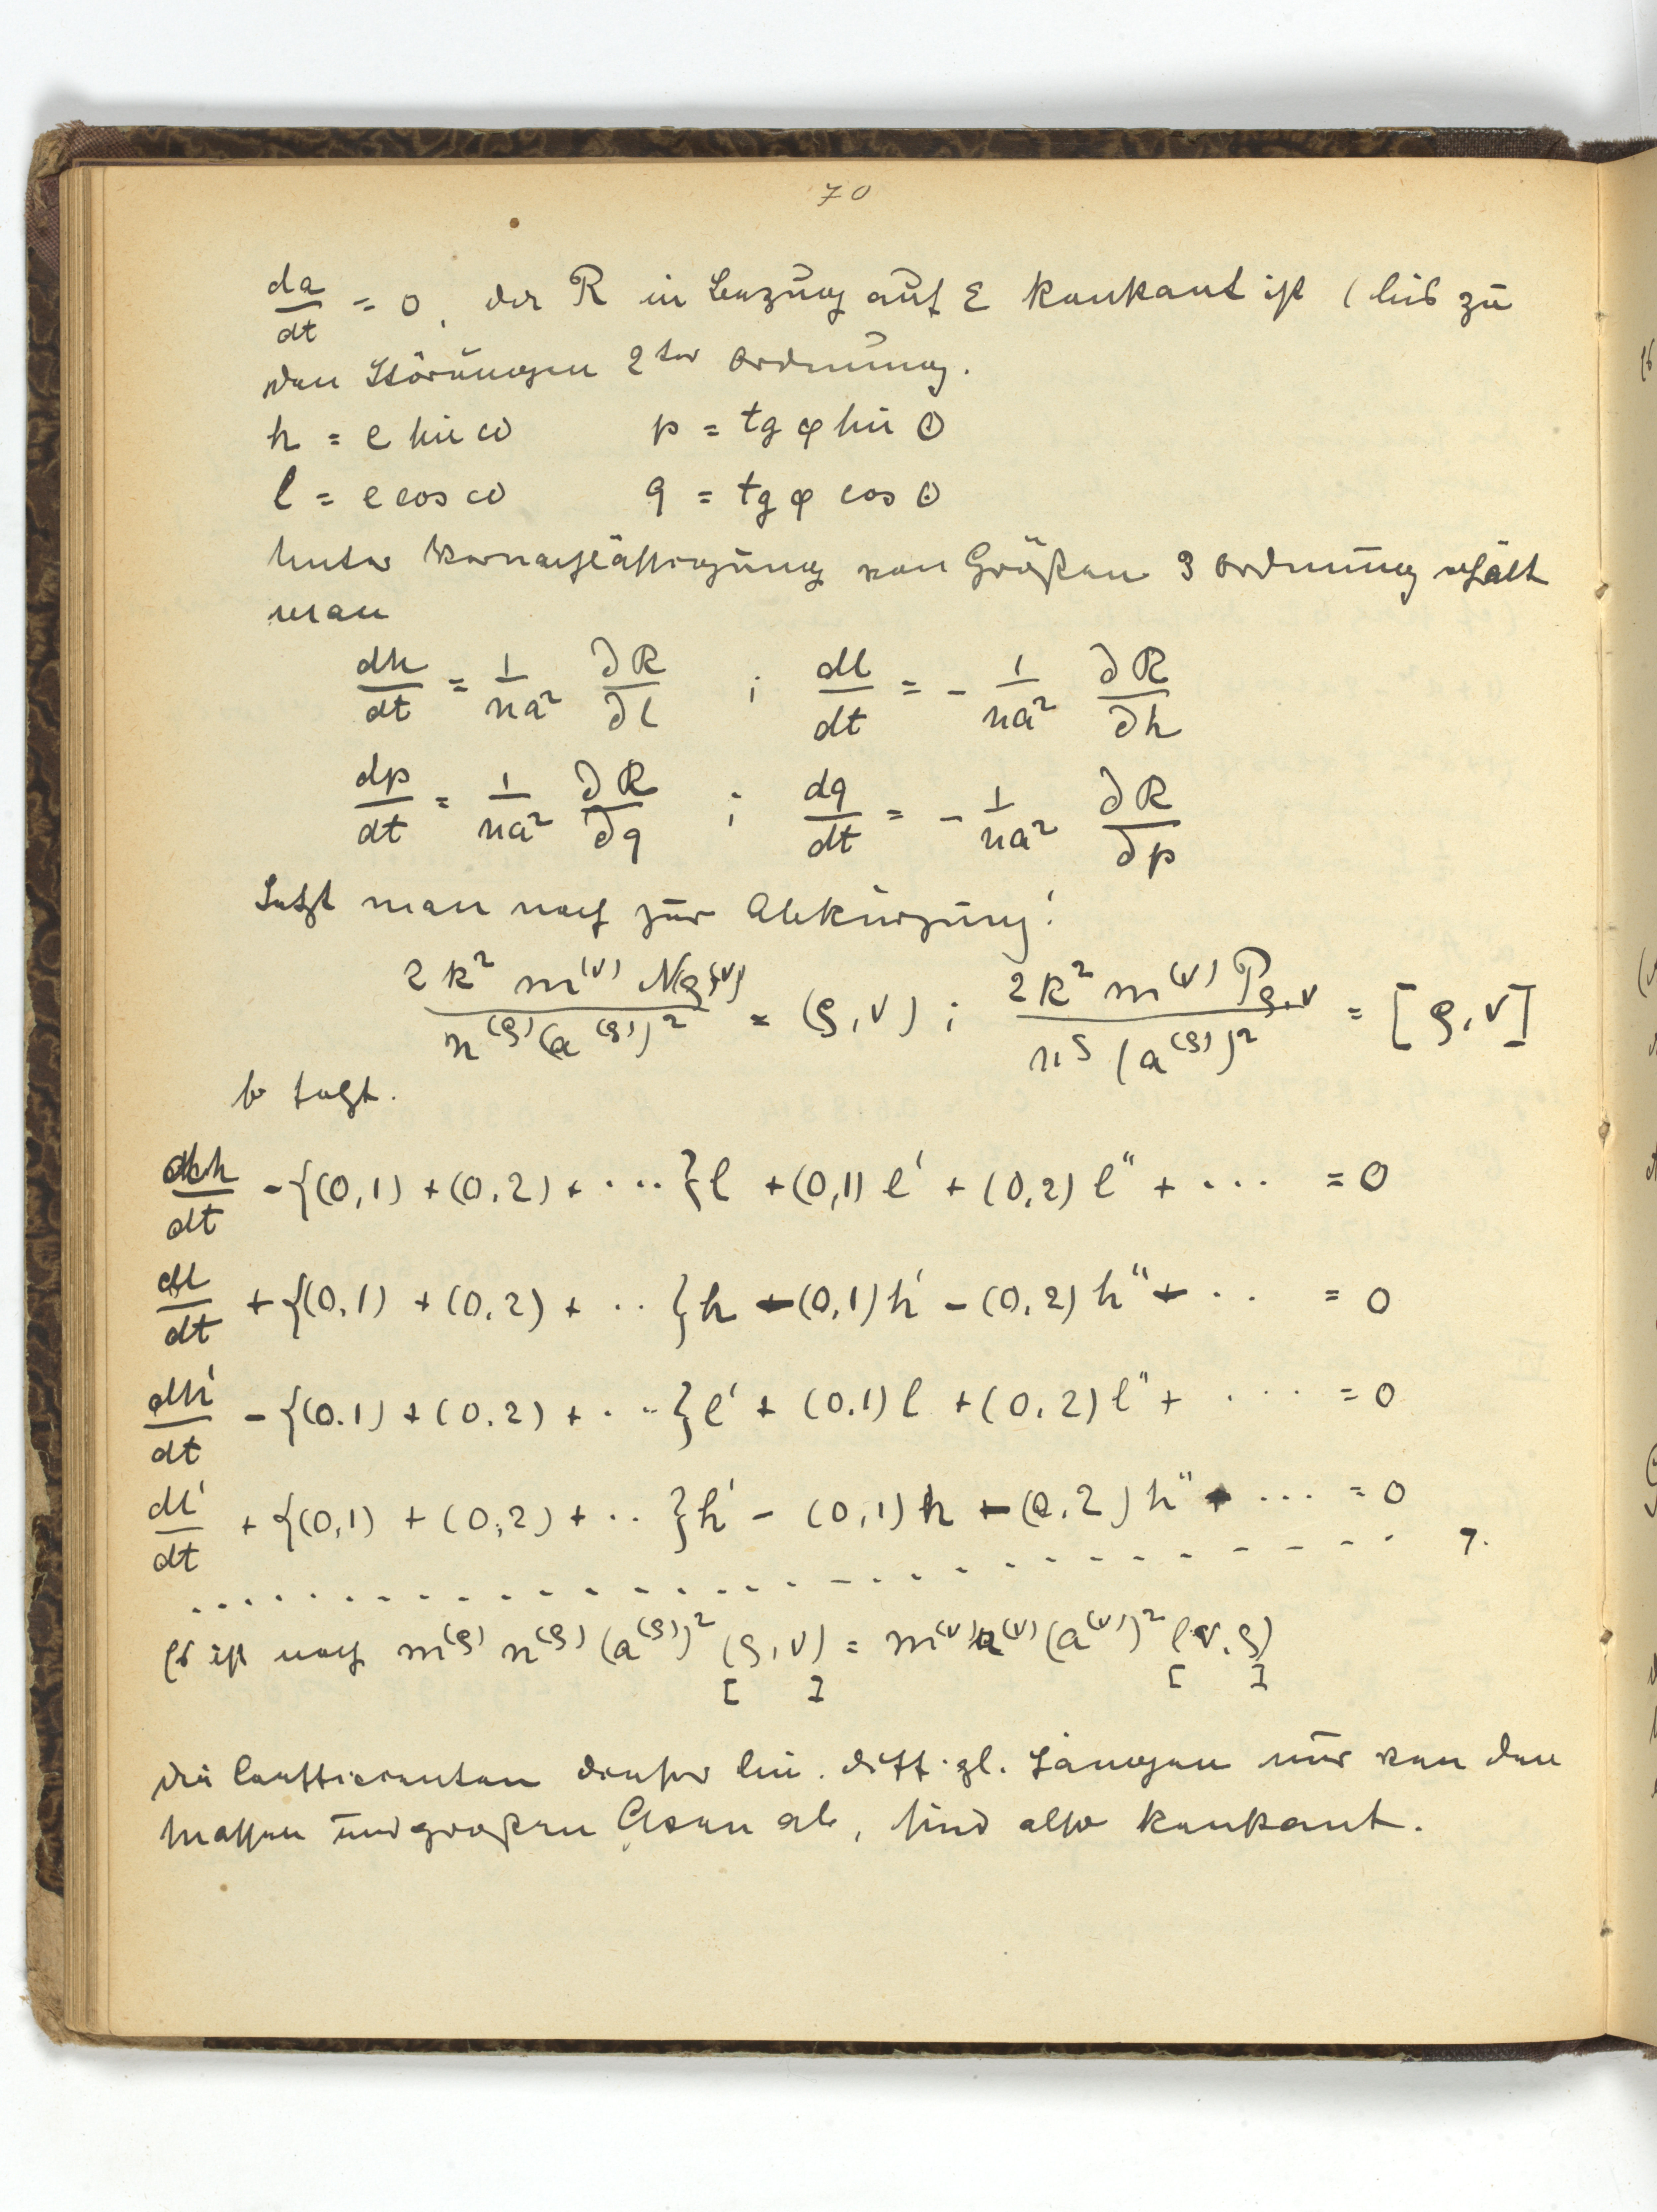 70
da/dt = 0, da R in Bezug auf ε konstant ist (bis zu
den Störungen 2ter Ordnung.
h = e sin ω p = tg φ sin θ
l = e cos ω q = tg φ cos θ
Unter Vernachlässigung von Größen 3 Ordnung erhält
man
dh/dt = 1/na² ∂R/∂l ; dl/dt = - 1/na² ∂R/∂h
dp/dt = 1/na² ∂R/∂q ; dq/dt = - 1/na² ∂R/∂p
Setzt man noch zur Abkürzung:
2k² m^(ν) N_ϱ,ν / n^(ϱ) (a^(ϱ))² = (ϱ,ν) ; 2k² m^(ν) P_ϱ,ν / n^ϱ (a^(ϱ))² = [ϱ,ν]
so folgt.
dh/dt - {(0,1) + (0,2) + ····}l + (0,1) l' + (0,2) l'' + ··· = 0
dl/dt + {(0,1) + (0,2) + ·· }h - (0,1) h' - (0,2) h'' - ·· = 0
dh'/dt - {(0.1) + (0.2) + ····}l' + (0,1) l + (0,2) l'' + ···· = 0
dl'/dt + {(0,1) + (0,2) + ·· }h' - (0,1) h - (0,2) h'' - ··· = 0
7.
Es ist noch m^(ϱ) n^(ϱ) (a^(ϱ))² (ϱ,ν) = m^(ν) n^(ν) (a^(ν))² (ν,ϱ)
[ ] [ ]
Die Coefficienten dieser lin. diff. gl. hängen nur von den
Massen und großen Axen ab, sind also konstant.